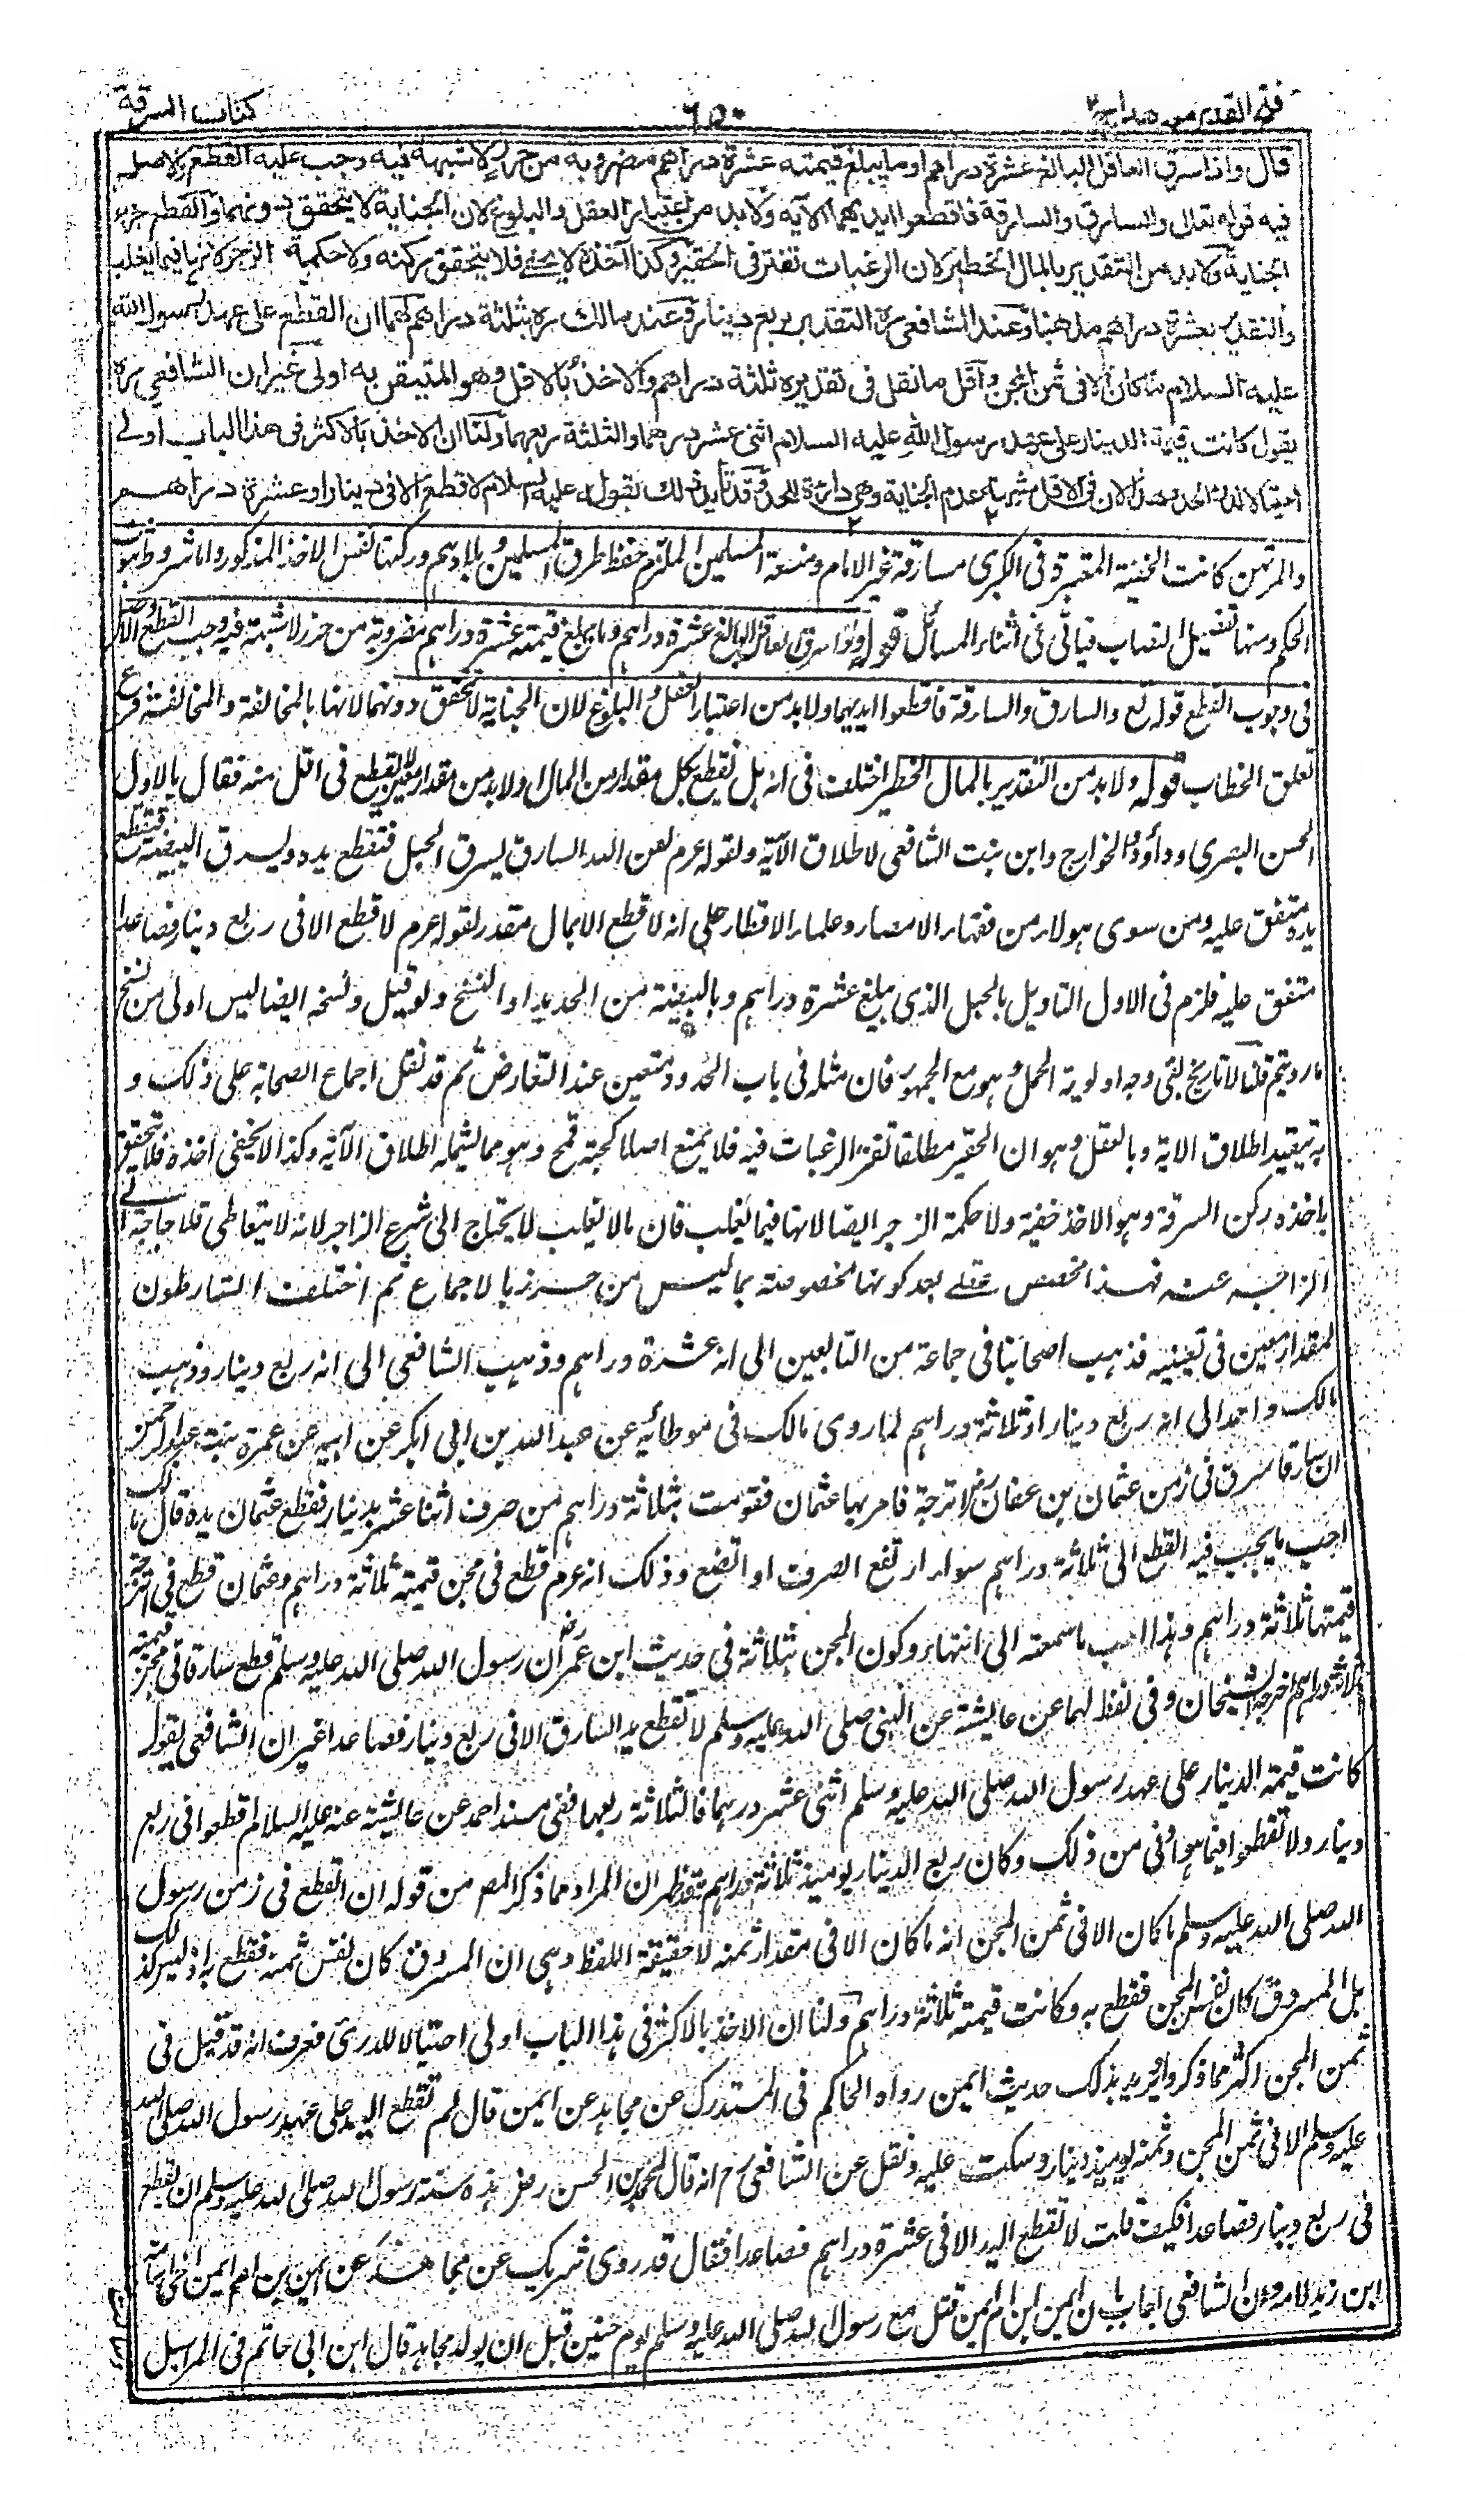 فتح القدير مع هداية ج٢
٦٥٠
كتاب السرقة
قال واذا سرق العاقل البالغ عشرة دراهم او ما يبلغ قيمته عشرة دراهم مضروبة من حرز لا شبهة فيه وجب عليه القطع والاصل
فيه قوله تعالى والسارق والسارقة فاقطعوا ايديهما الآية ولا بد من اعتبار العقل والبلوغ لان الجناية لا تتحقق دونهما والقطع جزاء
الجناية ولا بد من التقدير بالمال الخطير لان الرغبات تفتر في الحقير وكذا اخذه لا يخفى فلا يتحقق ركنه ولا حكمة الزجر لانها فيما يغلب
والتقدير بعشرة دراهم مذهبنا وعند الشافعي ره التقدير بربع دينار وعند مالك ره بثلثة دراهم لهما ان القطع على عهد رسول الله
عليه السلام ما كان الا في ثمن المجن واقل ما نقل في تقديره ثلثة دراهم والاخذ بالاقل وهو المتيقن به اولى غير ان الشافعي ره
يقول كانت قيمة الدينار على عهد رسول الله عليه السلام اثنى عشر درهما والثلثة ربعها ولنا ان الاخذ بالاكثر في هذا الباب اولى
احتيالا لدرء الحد وهذا لان في الاقل شبهة عدم الجناية وهي دارئة للحد وقد تأيد ذلك بقوله عليه السلام لا قطع الا في دينار او عشرة دراهم
والمرتهن كانت الخفية المعتبرة في الكبرى مسارقة عين الامام ومنعة المسلمين الملتزم حفظ طرق المسلمين وبلادهم وركنها نفس الاخذ المذكور واما شروط ثبوت
الحكم ومنها تفصيل النصاب فيأتي في اثناء المسائل قوله واذا سرق العاقل البالغ عشرة دراهم وما يبلغ قيمته عشرة دراهم مضروبة من حرز لا شبهة فيه وجب القطع والاصل
في وجوب القطع قوله تع والسارق والسارقة فاقطعوا ايديهما ولا بد من اعتبار العقل والبلوغ لان الجناية لا تتحقق دونهما لانها بالمخالفة والمخالفة فرع
تعلق الخطاب قوله ولا بد من التقدير بالمال الخطير اختلف في انه هل يقطع بكل مقدار من المال او لا بد من مقدار معين لا يقطع في اقل منه فقال بالاول
الحسن البصري وداؤد والخوارج وابن بنت الشافعي لاطلاق الآية ولقوله عرم لعن الله السارق يسرق الحبل فتقطع يده ويسرق البيضة فتقطع
يده متفق عليه ومن سوى هؤلاء من فقهاء الامصار وعلماء الاقطار على انه لا قطع الا بمال مقدر لقوله عرم لا قطع الا في ربع دينار فصاعدا
متفق عليه فلزم في الاول التاويل بالحبل الذي يبلغ عشرة دراهم وبالبيضة من الحديد او النسخ ولو قيل ونسخه ايضا ليس اولى من نسخ
ما رويتم قلنا لا تاريخ بقى وجه اولوية الحمل وهو مع الجمهور فان مثله في باب الحدود متعين عند التعارض ثم قد نقل اجماع الصحابة على ذلك و
به يتقيد اطلاق الاية وبالعقل وهو ان الحقير مطلقا تفتر الرغبات فيه فلا يمنع اصلا كحبة قمح وهو مما يشمله اطلاق الآية وكذا لا يخفى اخذه فلا يتحقق
باخذه ركن السرقة وهو الاخذ خفية ولا حكمة الزجر ايضا لانها فيما يغلب فان ما لا يغلب لا يحتاج الى شرع الزاجر لانه لا يتعاطى فلا حاجة الى
الزاجر عنه فهذا مخصص عقلي بعد كونها مخصوصة بما ليس من حرز بالاجماع ثم اختلف الشارطون
لمقدار معين في تعيينه فذهب اصحابنا في جماعة من التابعين الى انه عشرة دراهم وذهب الشافعي الى انه ربع دينار وذهب
مالك واحمد الى انه ربع دينار او ثلاثة دراهم لما روى مالك في موطائه عن عبد الله بن ابي ابكر عن ابيه عن عمرة بنت عبد الرحمن
ان سارقا سرق في زمن عثمان بن عفان رض اترجة فامر بها عثمان فقومت بثلاثة دراهم من صرف اثنا عشر بدينار فقطع عثمان يده قال مالك
احب ما يجب فيه القطع الى ثلاثة دراهم سواء ارتفع الصرف او اتضع وذلك انه عرم قطع في مجن قيمته ثلاثة دراهم وعثمان قطع في اترجة
قيمتها ثلاثة دراهم وهذا احب ما سمعته الى انتهاء وكون المجن بثلاثة في حديث ابن عمر رض ان رسول الله صلى الله عليه وسلم قطع سارقا في مجن قيمته
ثلاثة دراهم اخرجه الشيخان وفي لفظ لهما عن عايشة عن النبي صلى الله عليه وسلم لا تقطع يد السارق الا في ربع دينار فصاعدا غير ان الشافعي يقول
كانت قيمة الدينار على عهد رسول الله صلى الله عليه وسلم اثنى عشر درهما فالثلاثة ربعها ففي مسند احمد عن عايشة عنه عليه السلام اقطعوا في ربع
دينار ولا تقطعوا فيما هو ادنى من ذلك وكان ربع الدينار يومئذ ثلاثة دراهم فظهر ان المراد مما ذكر المص من قوله ان القطع في زمن رسول
الله صلى الله عليه وسلم ما كان الا في ثمن المجن انه ما كان الا في مقدار ثمنه لا حقيقة اللفظ وهي ان المسروق كان نفس ثمنه فقطع به اذ ليس كذلك
بل المسروق كان نفس المجن فقطع به وكانت قيمته ثلاثة دراهم ولنا ان الاخذ بالاكثر في هذا الباب اولى احتيالا للدرئ فعرف انه قد قيل في
ثمن المجن اكثر مما ذكروا يريد بذلك حديث ايمن رواه الحاكم في المستدرك عن مجاهد عن ايمن قال لم تقطع اليد على عهد رسول الله صلى الله
عليه وسلم الا في ثمن المجن وثمنه يومئذ دينار وسكت عليه ونقل عن الشافعي رح انه قال لمحمد بن الحسن رض هذه سنة رسول الله صلى الله عليه وسلم ان يقطع
في ربع دينار فصاعدا فكيف قلت لا تقطع اليد الا في عشرة دراهم فصاعدا فقال قد روى شريك عن مجاهد عن ايمن بن ام ايمن اخى اسامة
ابن زيد لامه وان الشافعي اجاب بان ايمن ابن ام ايمن قتل مع رسول الله صلى الله عليه وسلم يوم حنين قبل ان يولد مجاهد قال ابن ابي حاتم في المراسيل